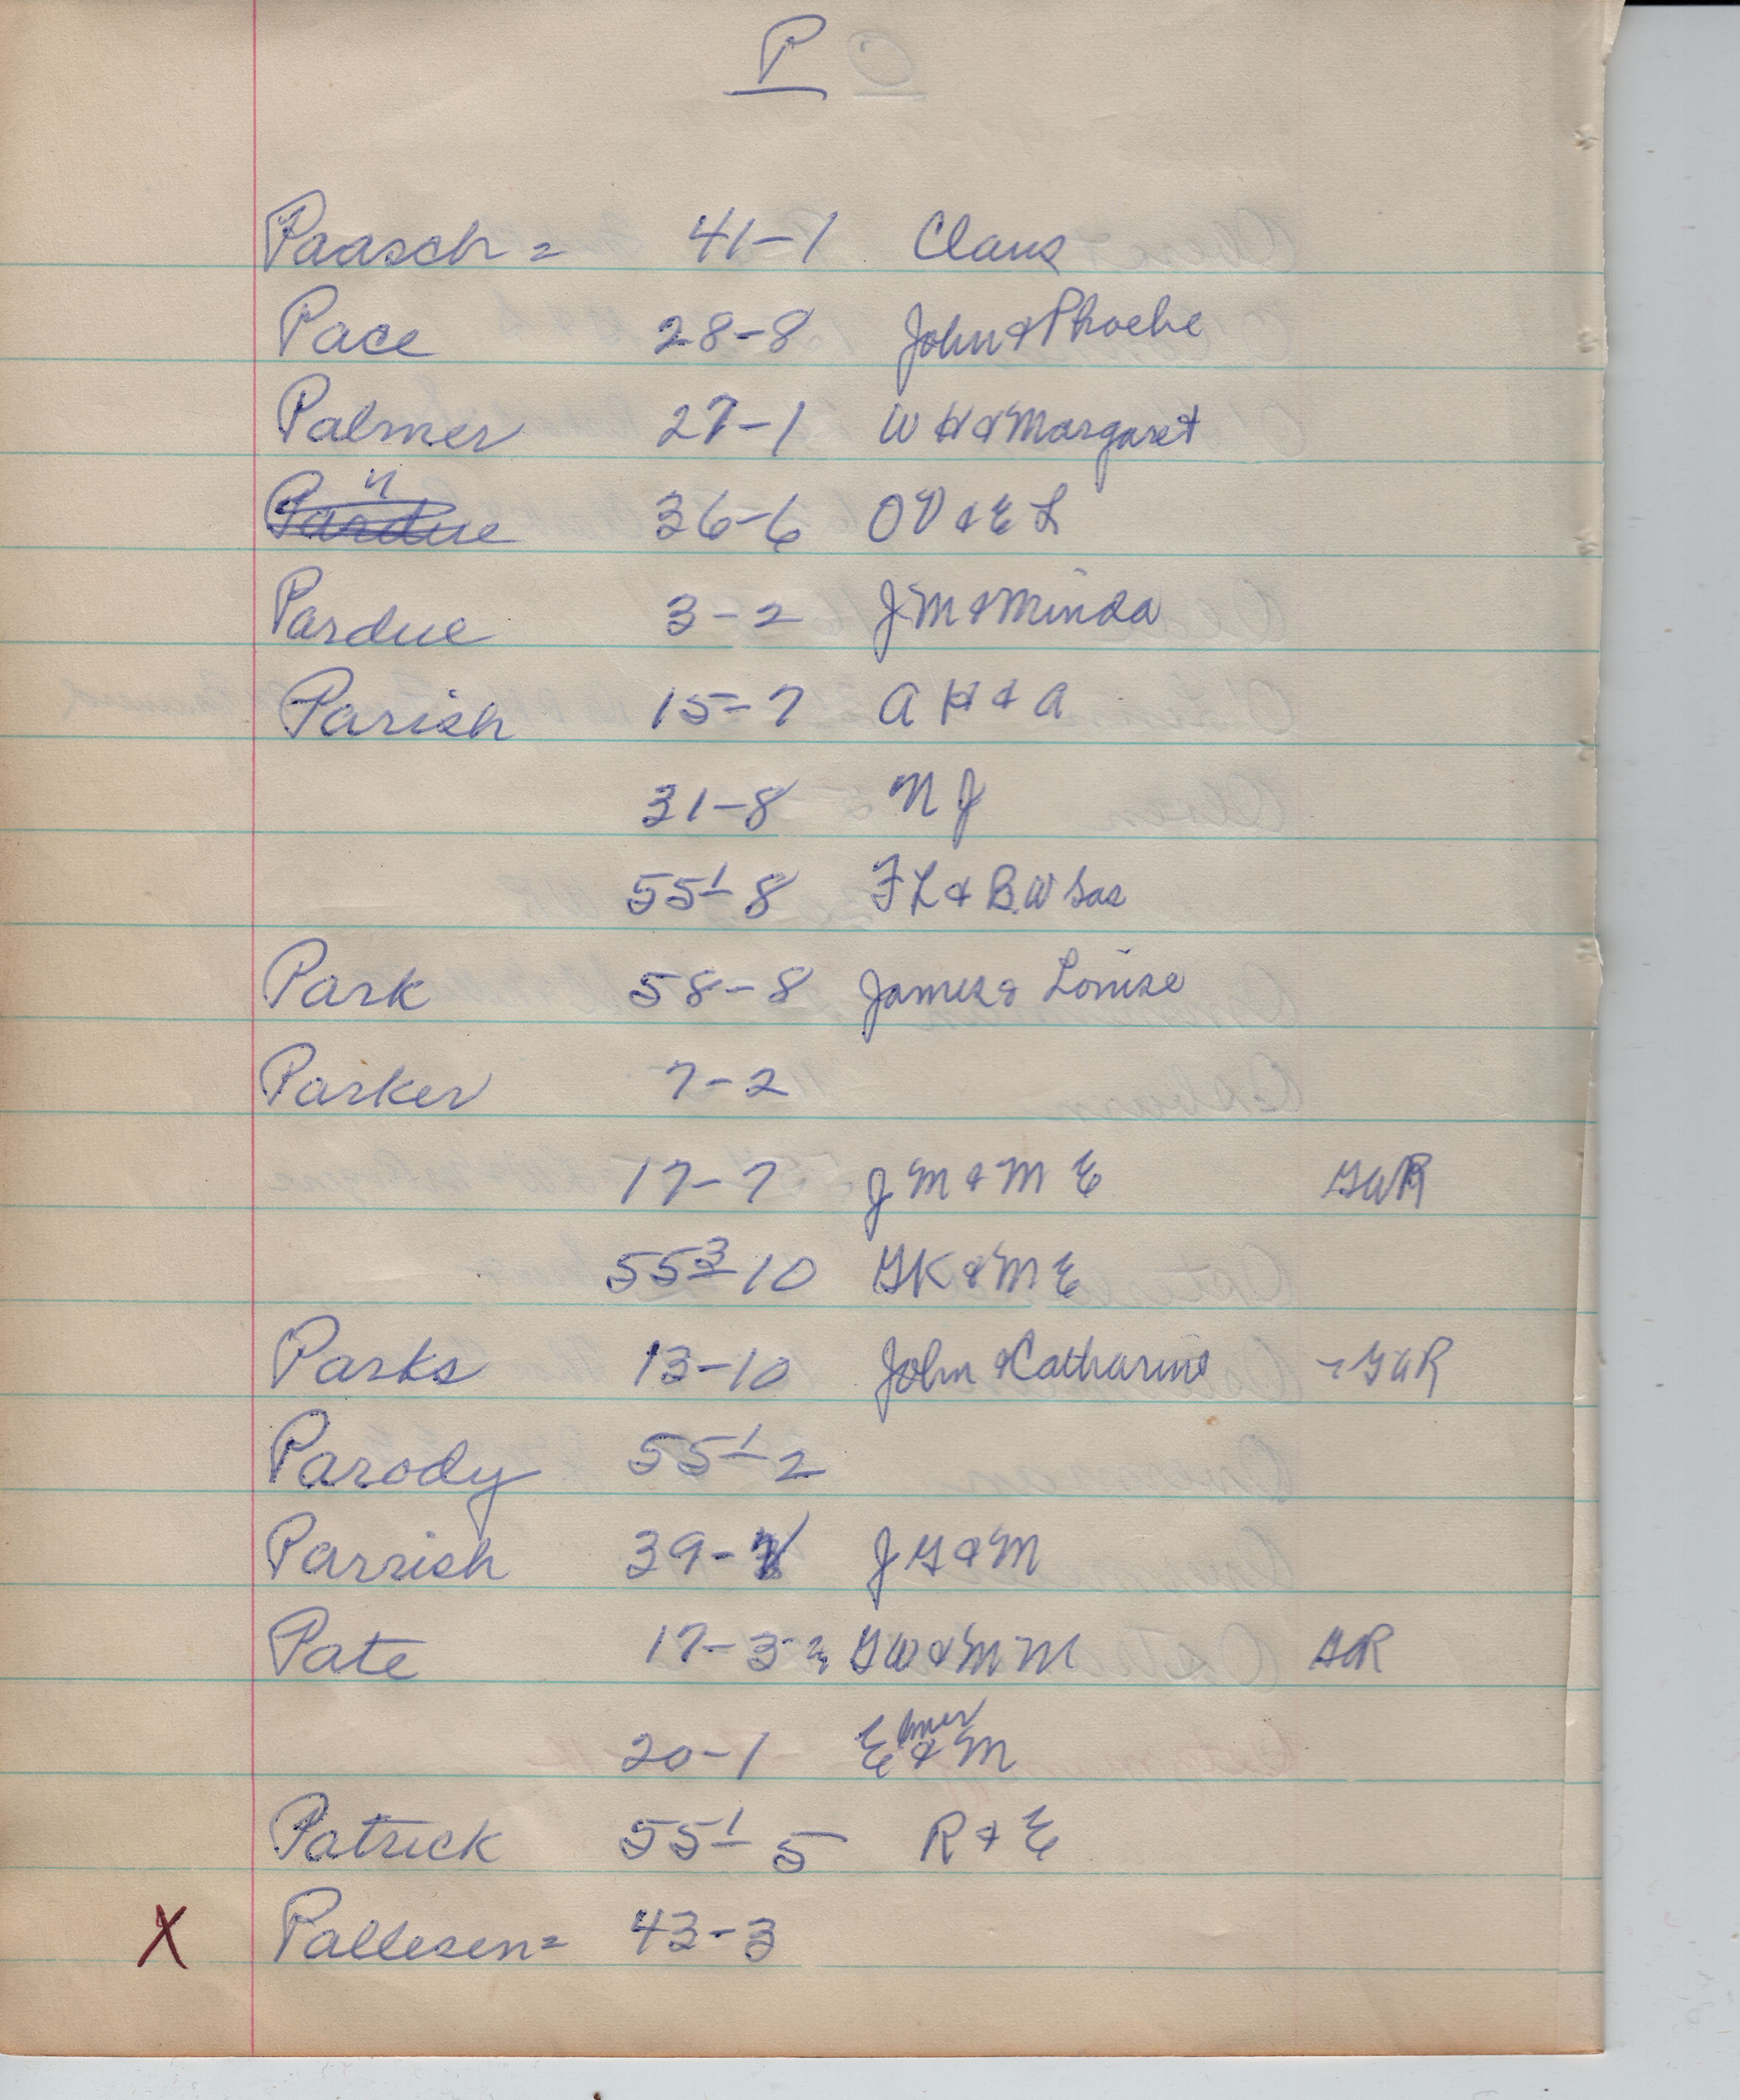 P
Paasch = 41-1 Claus
Pace 28-8 John & Phoebe
Palmer 27-1 W H & Margaret
" Pardue 36-6 O V & E L
Pardue 3-2 J M & Minda
Parish 15-7 A H & A
31-8 N J
55 1-8 F L & B.W
Park 58-8 James & Louise
Parker 7-2
17-7 J M & M E GAR
55 3-10 G K & M E
Parks 13-10 John & Catharine - GAR
Parody 55 1-2
Parrish 39- J G & M
Pate 17-3 = G W & M M GAR
20-1 Elmer & M
Patrick 55 1-5 R & E
X Pallesen = 43-3